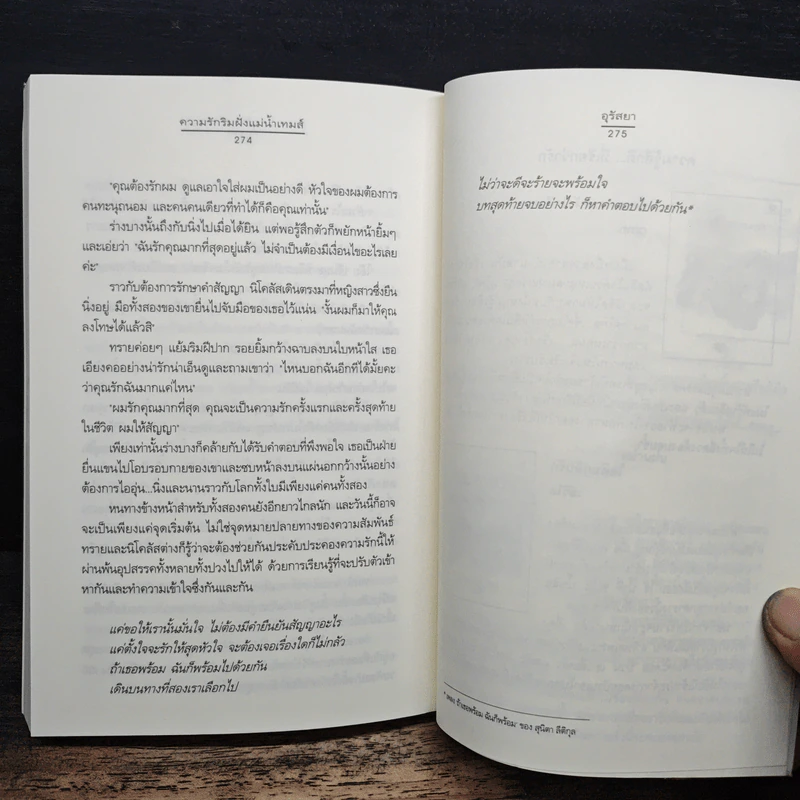 ความรักริมฝั่งแม่น้ำเทมส์
274
"คุณต้องรักผม ดูแลเอาใจใส่ผมเป็นอย่างดี หัวใจของผมต้องการ
คนทะนุถนอม และคนคนเดียวที่ทำได้ก็คือคุณเท่านั้น"
ร่างบางนั้นถึงกับนิ่งไปเมื่อได้ยิน แต่พอรู้สึกตัวก็พยักหน้ายิ้มๆ
และเอ่ยว่า "ฉันรักคุณมากที่สุดอยู่แล้ว ไม่จำเป็นต้องมีเงื่อนไขอะไรเลย
ค่ะ"
ราวกับต้องการรักษาคำสัญญา นิโคลัสเดินตรงมาที่หญิงสาวซึ่งยืน
นิ่งอยู่ มือทั้งสองของเขายื่นไปจับมือของเธอไว้แน่น "งั้นผมก็มาให้คุณ
ลงโทษได้แล้วสิ"
ทรายค่อยๆ แย้มริมฝีปาก รอยยิ้มกว้างฉาบลงบนใบหน้าใส เธอ
เอียงคออย่างน่ารักน่าเอ็นดูและถามเขาว่า "ไหนบอกฉันอีกทีได้มั้ยคะ
ว่าคุณรักฉันมากแค่ไหน"
"ผมรักคุณมากที่สุด คุณจะเป็นความรักครั้งแรกและครั้งสุดท้าย
ในชีวิต ผมให้สัญญา"
เพียงเท่านั้นร่างบางก็คล้ายกับได้รับคำตอบที่พึงพอใจ เธอเป็นฝ่าย
ยื่นแขนไปโอบรอบกายของเขาและซบหน้าลงบนแผ่นอกกว้างนั้นอย่าง
ต้องการไออุ่น...นิ่งและนานราวกับโลกทั้งใบมีเพียงแค่คนทั้งสอง
หนทางข้างหน้าสำหรับทั้งสองคนยังอีกยาวไกลนัก และวันนี้ก็อาจ
จะเป็นเพียงแค่จุดเริ่มต้น ไม่ใช่จุดหมายปลายทางของความสัมพันธ์
ทรายและนิโคลัสต่างก็รู้ว่าจะต้องช่วยกันประคับประคองความรักนี้ให้
ผ่านพ้นอุปสรรคทั้งหลายทั้งปวงไปให้ได้ ด้วยการเรียนรู้ที่จะปรับตัวเข้า
หากันและทำความเข้าใจซึ่งกันและกัน
แค่ขอให้เรานั้นมั่นใจ ไม่ต้องมีคำยืนยันสัญญาอะไร
แค่ตั้งใจจะรักให้สุดหัวใจ จะต้องเจอเรื่องใดก็ไม่กลัว
ถ้าเธอพร้อม ฉันก็พร้อมไปด้วยกัน
เดินบนทางที่สองเราเลือกไป
อุรัสยา
275
ไม่ว่าจะดีจะร้ายจะพร้อมใจ
บทสุดท้ายจบอย่างไร ก็หาคำตอบไปด้วยกัน*
* เพลง ถ้าเธอพร้อม ฉันก็พร้อม ของ สุนิตา ลีติกุล